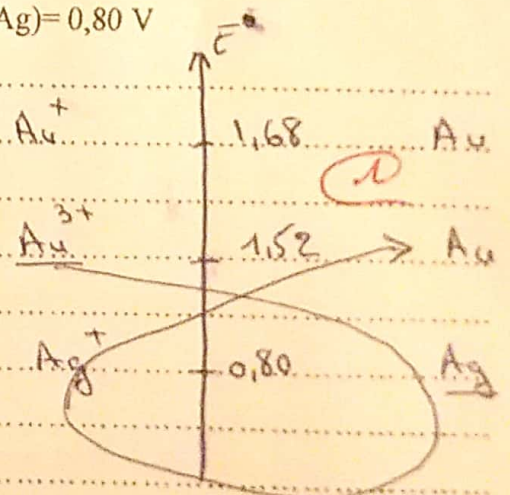 Ag)= 0,80 V
E°
Au+ 1,68 Au
1
Au3+ 1,52 Au
Ag+ 0,80 Ag